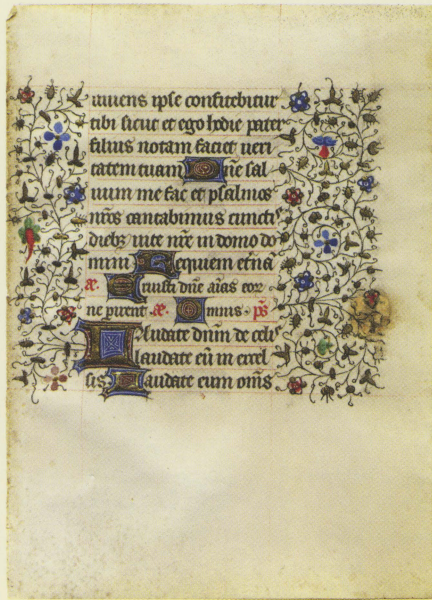 uiuens ipse confitebitur
tibi sicut et ego hodie pater
filiis notam faciet ueri
tatem tuam Dñe sal
uum me fac et psalmos
nr̃os cantabimus cuncti⁹
diebꝫ uite nr̃e in domo do
mini Requiem et̃nã
Eruisti dñe aĩas eor
ne pirent Omnis ps̃
Laudate dñm de cel⁹
laudate eũ in excel
sis Laudate eum om̃s